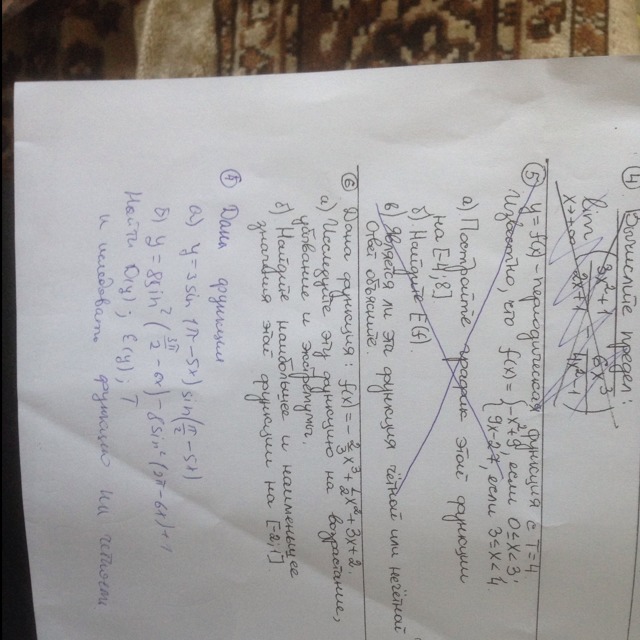 ④ Вычислите предел:
lim
x→∞
⑤ y = f(x) - периодическая функция с T=4
Известно, что f(x) = { -x²+3, если 0≤x≤3;
если 3<x<4.
а) Постройте график этой функции
на [-4;8]
б) Найдите E(f).
в) Является ли эта функция чётной или нечётной
Ответ объясните.
⑥ Дана функция: f(x) = - x³ + x² - 3x + 2.
а) Исследуйте эту функцию на возрастание,
убывание и экстремумы.
б) Найдите наибольшее и наименьшее
значения этой функции на [-2;1]
Даны функции
а) y = 3 sin (π - 5x) sin (π/2 - 5x)
б) y = 8 sin² (3π/2 - 6x) - 8 sin² (3π - 6x) + 1
Найти D(y); E(y); T
и исследовать функцию на четность